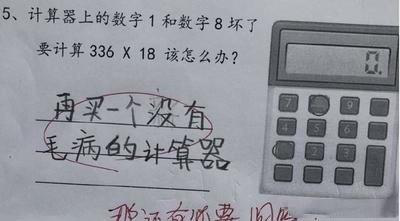 5、计算器上的数字1和数字8坏了
要计算336 X 18 该怎么办?
再买一个没有
毛病的计算器
0.
7 9
4 5 6
2 3
那还有必要